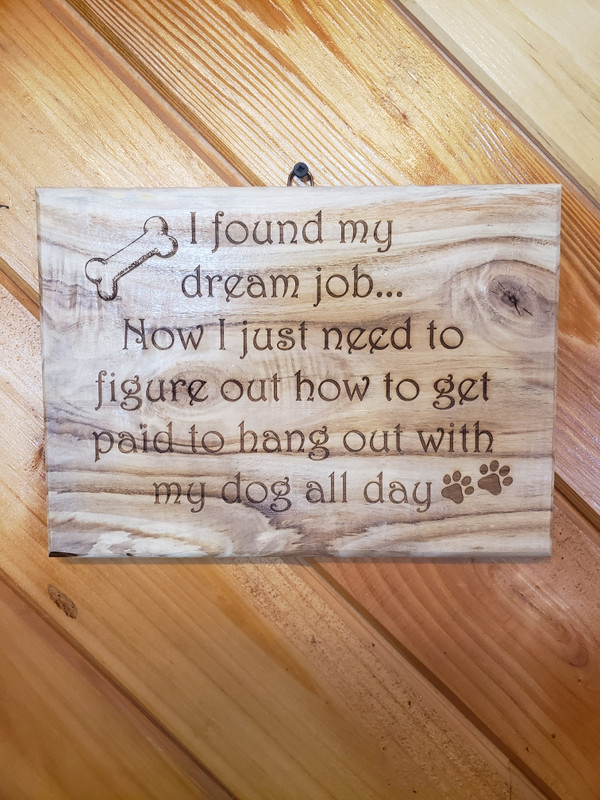 I found my
dream job...
Now I just need to
figure out how to get
paid to hang out with
my dog all day